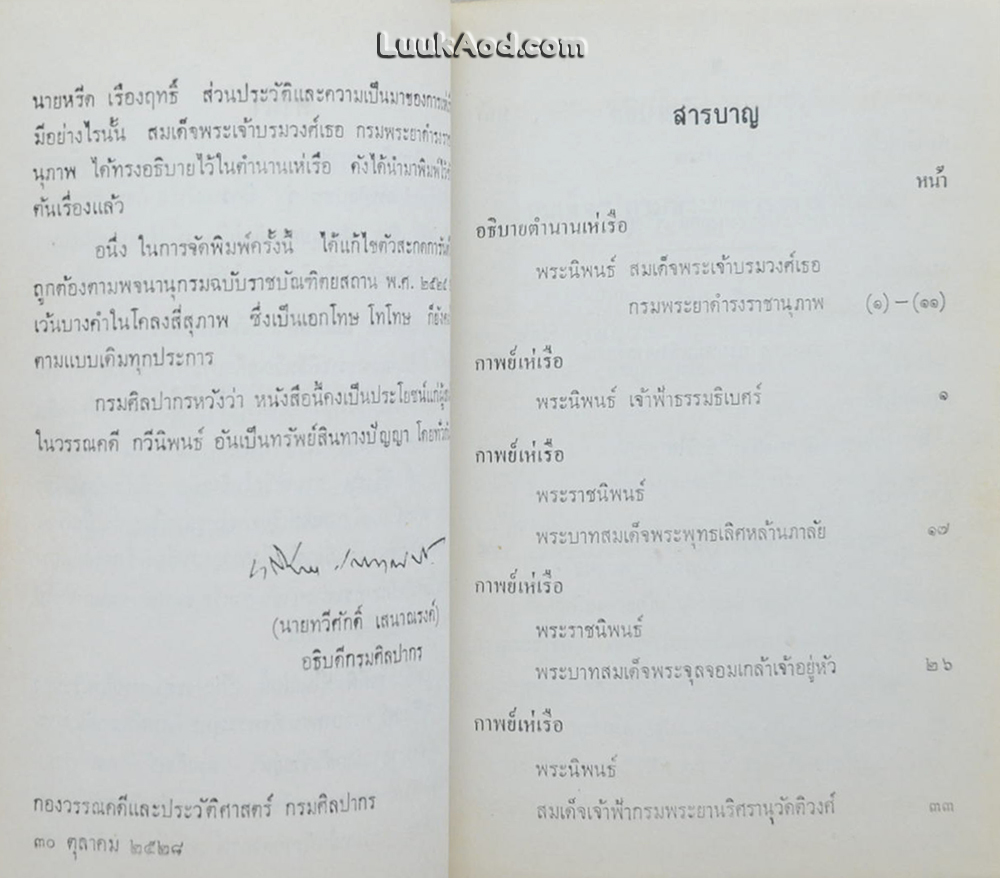 LuukAod.com
นายหรีด เรืองฤทธิ์ ส่วนประวัติและความเป็นมาของการเห่เรือ
มีอย่างไรนั้น สมเด็จพระเจ้าบรมวงศ์เธอ กรมพระยาดำรงรา
นุภาพ ได้ทรงอธิบายไว้ในตำนานเห่เรือ ดังได้นำมาพิมพ์ไว้
ต้นเรื่องแล้ว
อนึ่ง ในการจัดพิมพ์ครั้งนี้ ได้แก้ไขตัวสะกดการันต์
ถูกต้องตามพจนานุกรมฉบับราชบัณฑิตยสถาน พ.ศ. ๒๕๒๕
เว้นบางคำในโคลงสี่สุภาพ ซึ่งเป็นเอกโทษ โทโทษ ก็ยังคง
ตามแบบเดิมทุกประการ
กรมศิลปากรหวังว่า หนังสือนี้คงเป็นประโยชน์แก่ผู้
ในวรรณคดี กวีนิพนธ์ อันเป็นทรัพย์สินทางปัญญา โดยทั่ว
(นายทวีศักดิ์ เสนาณรงค์)
อธิบดีกรมศิลปากร
กองวรรณคดีและประวัติศาสตร์ กรมศิลปากร
๓๐ ตุลาคม ๒๕๒๘
สารบาญ
หน้า
อธิบายตำนานเห่เรือ
พระนิพนธ์ สมเด็จพระเจ้าบรมวงศ์เธอ
กรมพระยาดำรงราชานุภาพ (๑) – (๑๑)
กาพย์เห่เรือ
พระนิพนธ์ เจ้าฟ้าธรรมธิเบศร์ ๑
กาพย์เห่เรือ
พระราชนิพนธ์
พระบาทสมเด็จพระพุทธเลิศหล้านภาลัย ๑๗
กาพย์เห่เรือ
พระราชนิพนธ์
พระบาทสมเด็จพระจุลจอมเกล้าเจ้าอยู่หัว ๒๖
กาพย์เห่เรือ
พระนิพนธ์
สมเด็จเจ้าฟ้ากรมพระยานริศรานุวัดติวงศ์ ๓๓